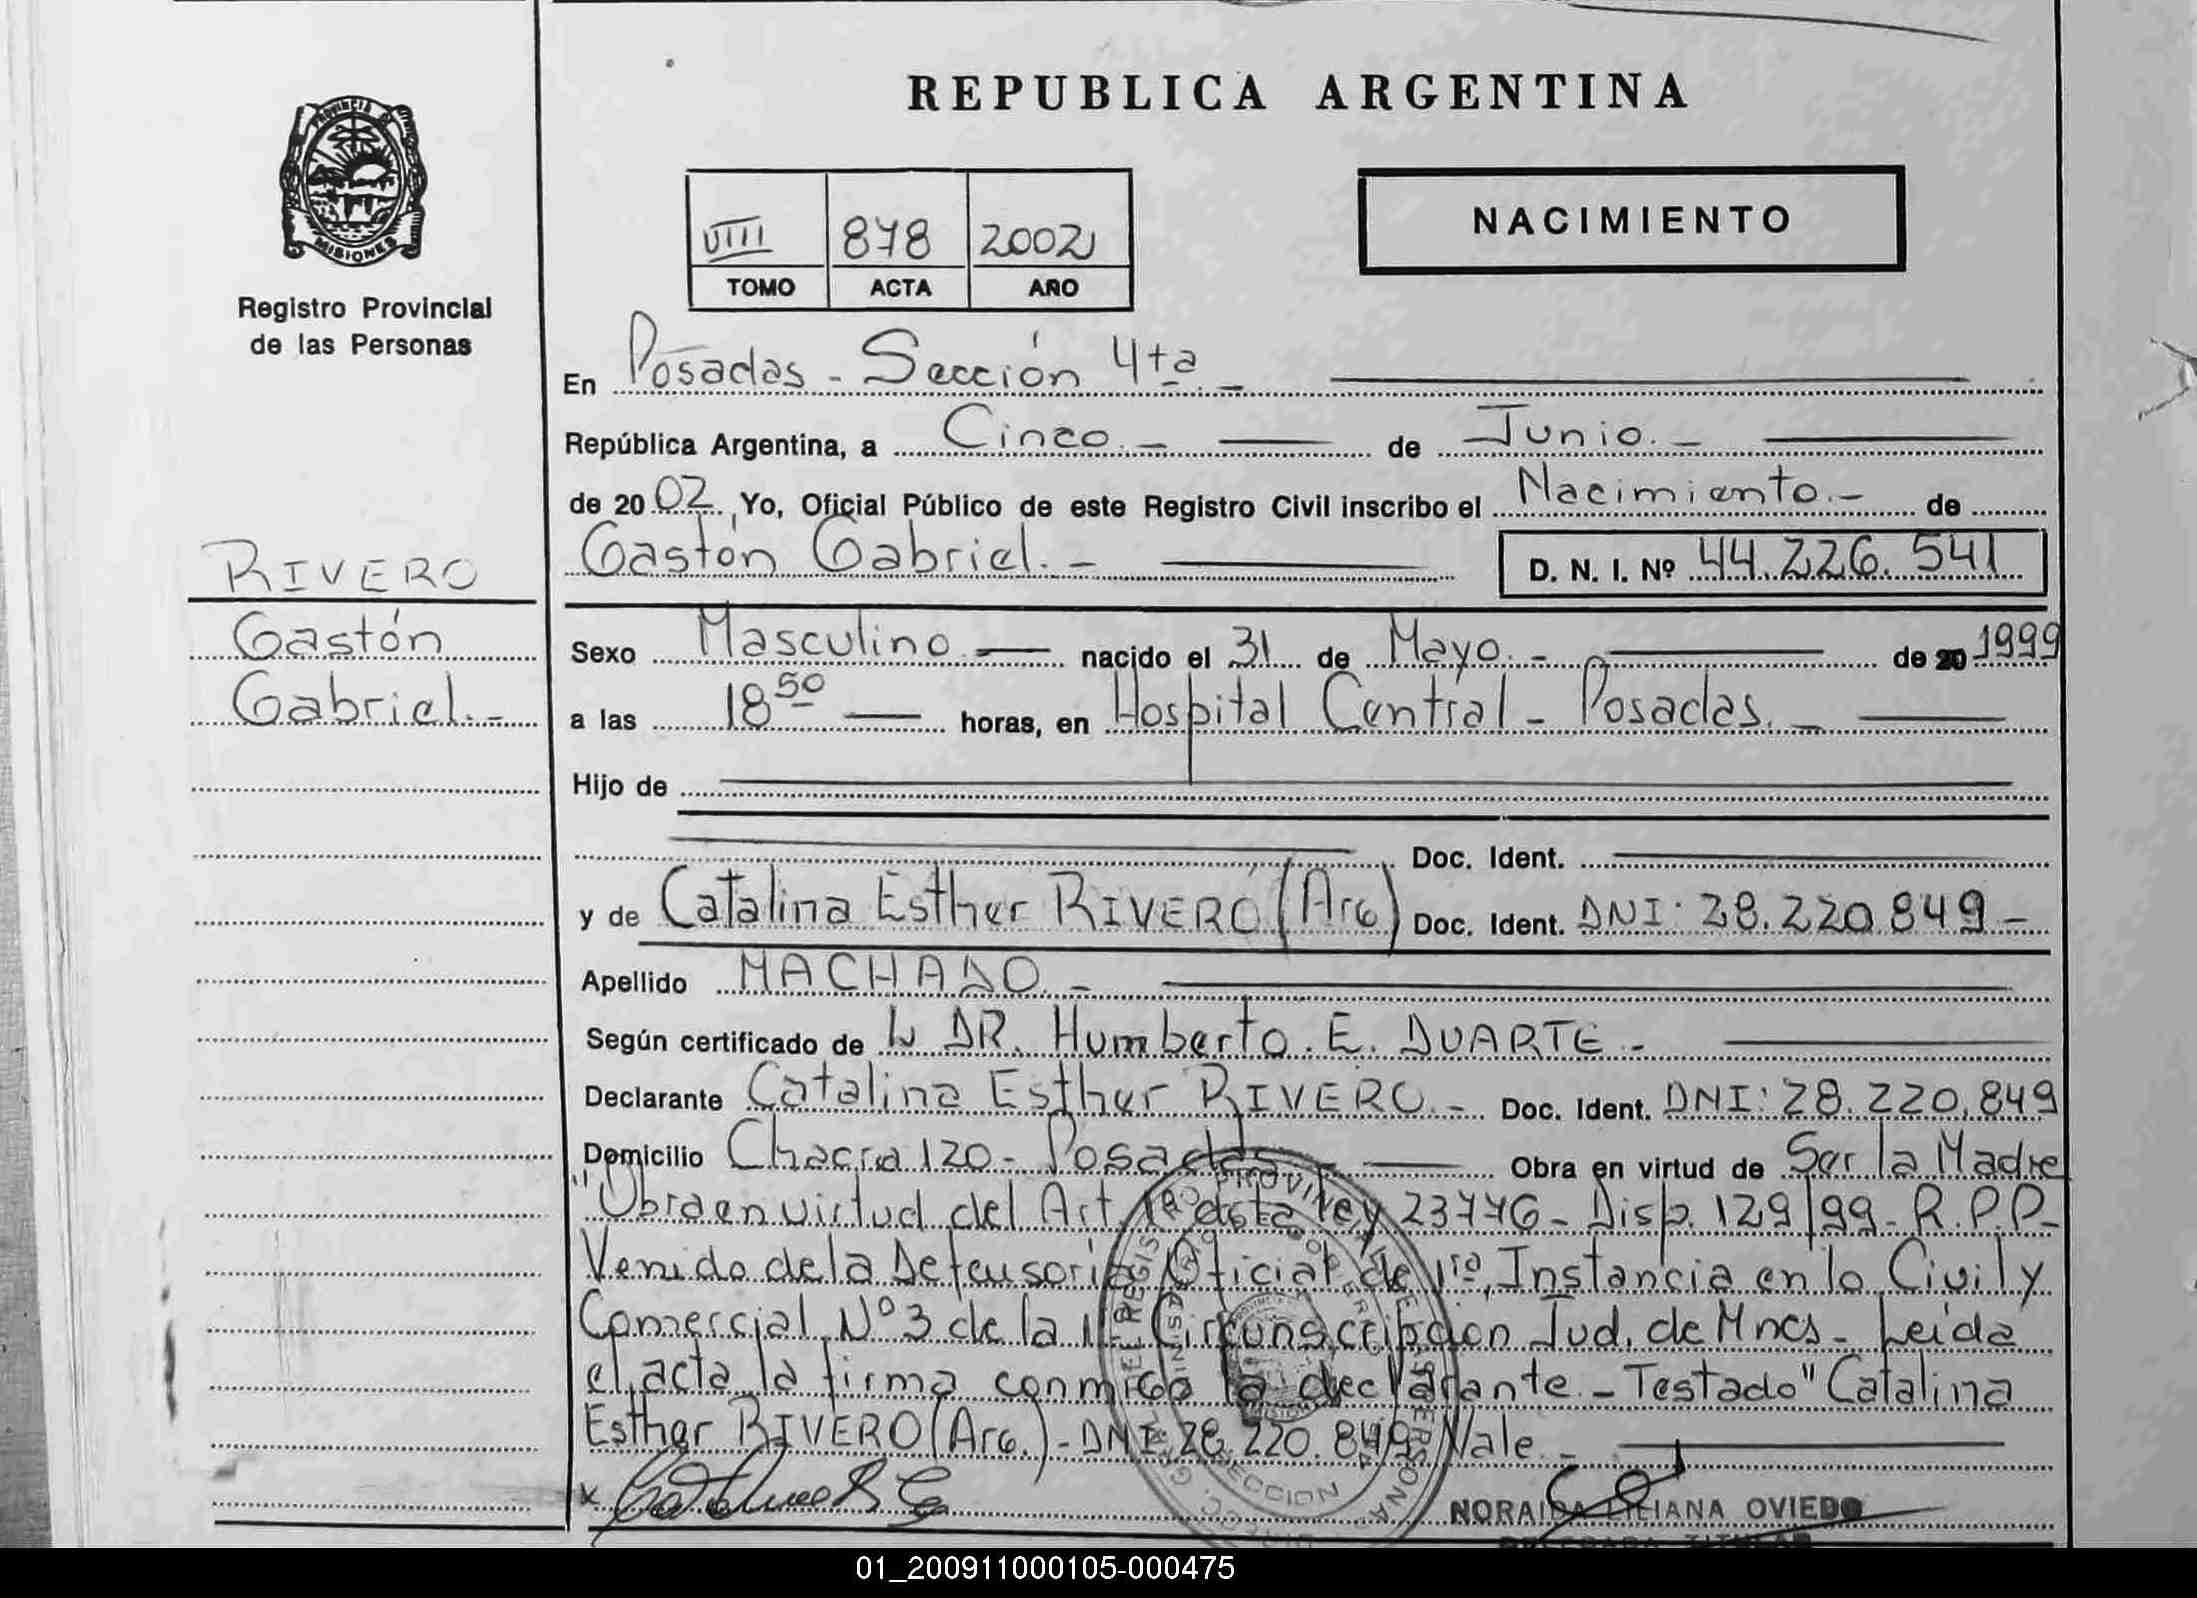 REPUBLICA ARGENTINA
PROVINCIA DE
MISIONES
Registro Provincial
de las Personas
VIII 878 2002
TOMO ACTA AÑO
NACIMIENTO
En Posadas - Sección 4ta. -
República Argentina, a Cinco. - de Junio. -
de 2002. Yo, Oficial Público de este Registro Civil inscribo el Nacimiento. - de
Gastón Gabriel. - D. N. I. Nº 44.226.541
RIVERO
Gastón
Gabriel. -
Sexo Masculino. nacido el 31 de Mayo. - de 20 1999
a las 18 50 horas, en Hospital Central - Posadas. -
Hijo de
Doc. Ident.
y de Catalina Esther RIVERO (Arg) Doc. Ident. DNI: 28.220.849 -
Apellido MACHADO. -
Según certificado de DR. Humberto. E. DUARTE -
Declarante Catalina Esther RIVERO. - Doc. Ident. DNI: 28.220.849
Domicilio Chacra 120 - Posadas Obra en virtud de Ser la Madre
"Obra en virtud del Art. 1º de la ley 23776 - Disp. 129/99 - R.P.P. -
Venido de la Defensoría Oficial de 1ra. Instancia en lo Civil y
Comercial Nº 3 de la Circunscripción Jud. de Mnes - Leida
el acta la firma conmigo la declarante - Testado "Catalina
Esther RIVERO (Arg.) - DNI 28.220.849 Vale. -
x
NORAIDA LILIANA OVIEDO
DELEGADA TITULAR
01_200911000105-000475